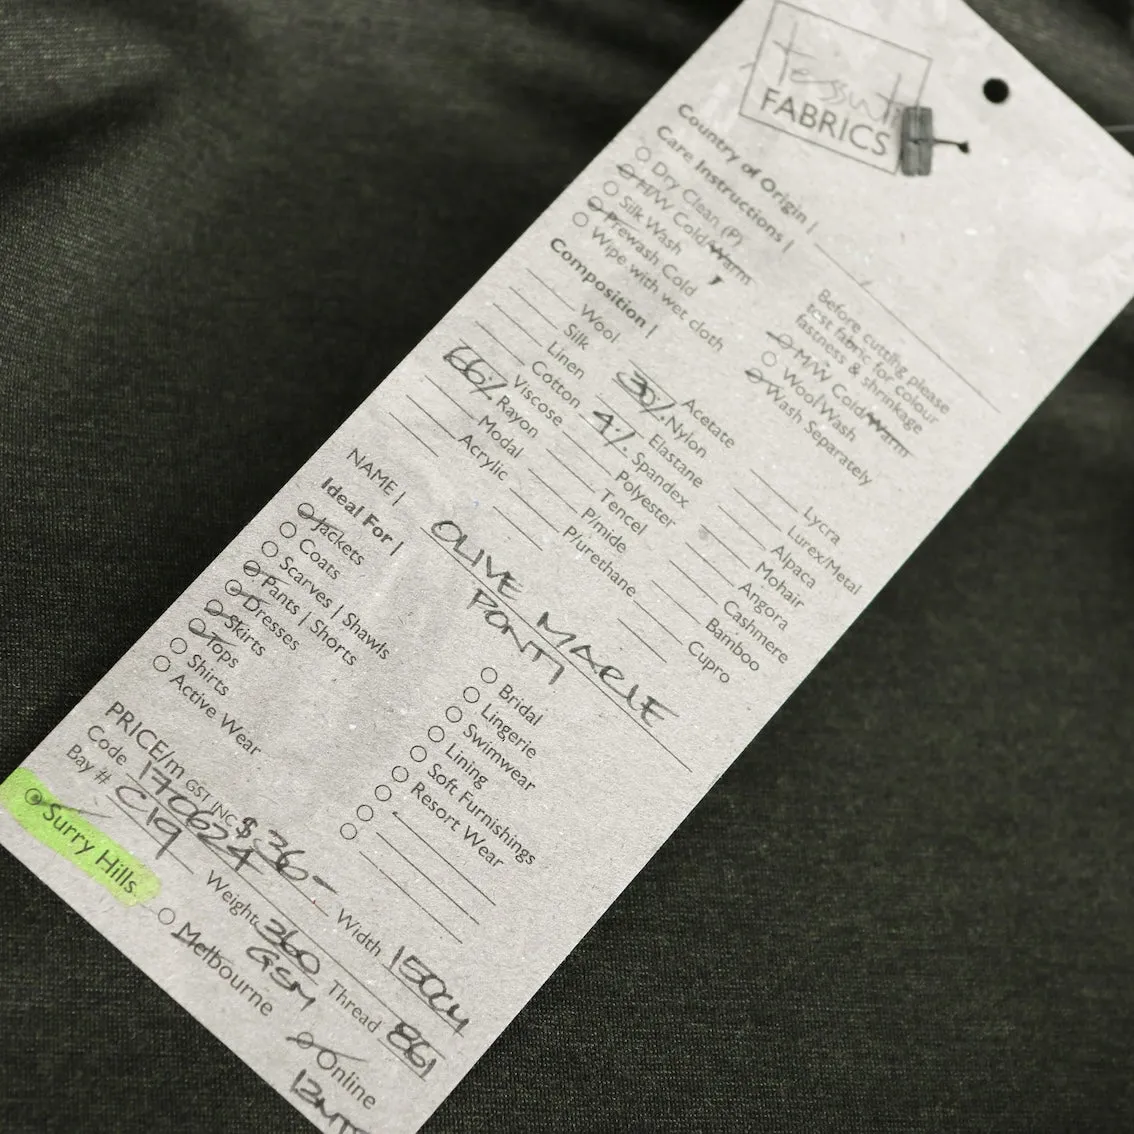 tessuti
FABRICS
Country of Origin |
Care Instructions |
Dry Clean (P)
H/W Cold/Warm
Silk Wash
Prewash Cold
Wipe with wet cloth
Before cutting please
test fabric for colour
fastness & shrinkage
M/W Cold/Warm
Wool Wash
Wash Separately
Composition |
Wool
Silk
Linen
Cotton
Viscose
66% Rayon
Modal
Acrylic
Acetate
30% Nylon
Elastane
4% Spandex
Polyester
Tencel
P/mide
P/urethane
Lycra
Lurex/Metal
Alpaca
Mohair
Angora
Cashmere
Bamboo
Cupro
NAME | OLIVE MARLE
PONTI
Ideal For |
Jackets
Coats
Scarves | Shawls
Pants | Shorts
Dresses
Skirts
Tops
Shirts
Active Wear
Bridal
Lingerie
Swimwear
Lining
Soft Furnishings
Resort Wear
PRICE/m GST INC. $36-
Width 150cm
Code 170624
Weight 360
GSM
Thread 861
Bay # C19
Surry Hills
Melbourne
Online